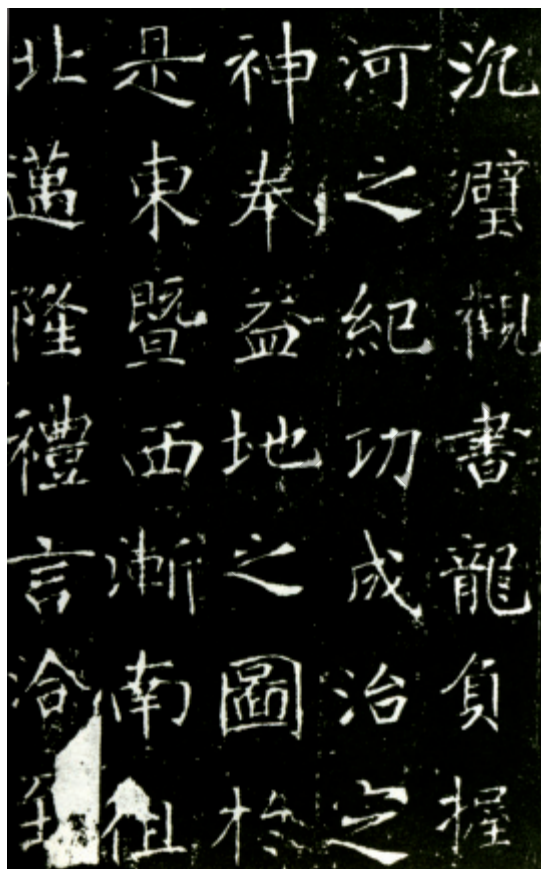 沉璧觀書龍負握
河之紀功成治之
神奉益地之圖於
是東暨西漸南徂
北邁隆禮言洽